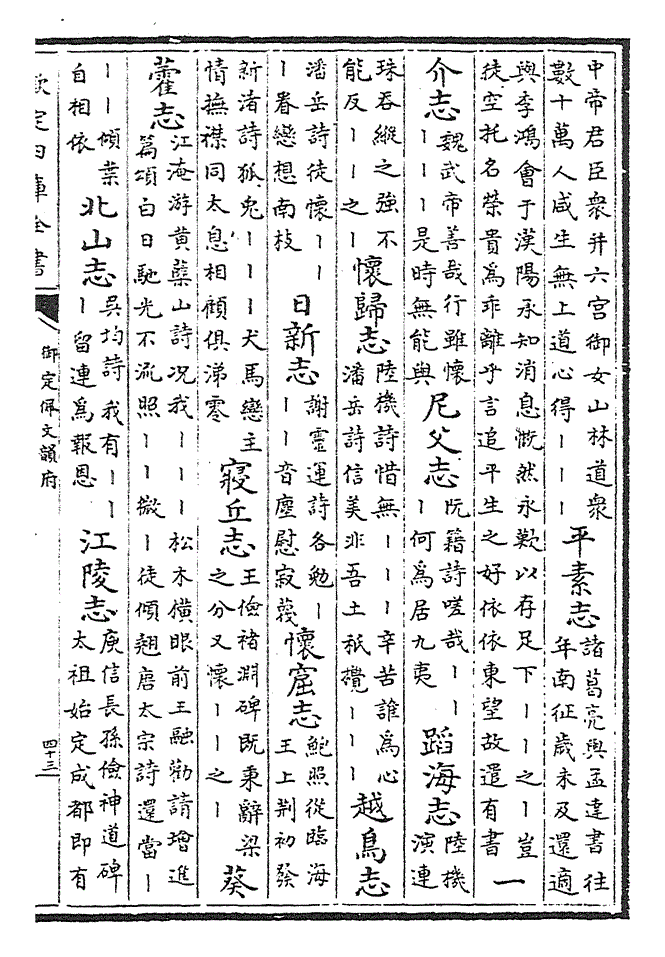 中帝君臣衆并六宫御女山林道衆
數十萬人咸生無上道心得｜｜｜
平素志
諸葛亮與孟達書往
年南征歲未及還適
與李鴻會于漢陽承知消息慨然永歎以存足下｜｜之｜豈
徒空托名榮貴爲乖離乎言追平生之好依依東望故遣有書
一
介志
魏武帝善哉行雖懷
｜｜｜是時無能與
尼父志
阮籍詩嗟哉｜｜
｜何爲居九夷
蹈海志
陸機
演連
珠吞縱之強不
能反｜｜之｜
懷歸志
陸機詩惜無｜｜｜辛苦誰爲心
潘岳詩信美非吾土祇攪｜｜｜
越鳥志
潘岳詩徒懷｜｜
｜眷戀想南枝
日新志
謝靈運詩各勉｜
｜｜音塵慰寂蔑
懷窟志
鮑照從臨海
王上荆初發
新渚詩狐兔｜｜｜犬馬戀主
情撫襟同太息相顧俱涕零
寢丘志
王儉褚淵碑既秉辭梁
之分又懷｜｜之｜
葵
藿志
江淹游黄蘗山詩况我｜｜｜松木横眼前王融勸請增進
篇頌白日馳光不流照｜｜微｜徒傾翹唐太宗詩還當｜
｜｜傾葉
自相依
北山志
吳均詩我有｜｜
｜留連爲報恩
江陵志
庾信長孫儉神道碑
太祖始定成都即有
欽定四庫全書
御定佩文韻府
四十三